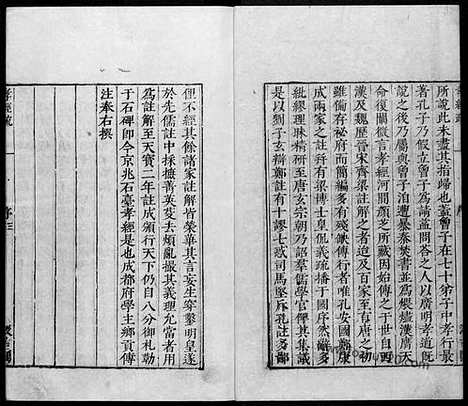 所說此未盡其指歸也蓋曾子在七十弟子中孝行最
著孔子乃假立曾子為請益問荅之人以廣明孝道旣
說之後乃屬與曾子洎遭暴秦焚書並為煨燼漢膺天
命復闡微言孝經河間顏芝所藏因始傳之于世自西
漢及魏歷晉宋齊梁註解之者迨及百家至有唐之初
雖備存祕府而簡編多有殘缺傳行者唯孔安國鄭康
成兩家之註并有梁博士皇侃義疏播于國序然辭多
紕繆理昧精研至唐玄宗朝乃詔羣儒學官俾其集議
是以劉子玄辯鄭註有十謬七惑司馬堅斥孔註多鄙
俚不經其餘諸家註解皆榮華其言妄生穿鑿明皇遂
於先儒註中採摭菁英芟去煩亂撮其義理允當者用
為註解至天寶二年註成頒行天下仍自八分御札勒
于石碑即今京兆石臺孝經是也成都府學主鄉貢傳
注奉右撰
孝經疏
序
三
汲古閣